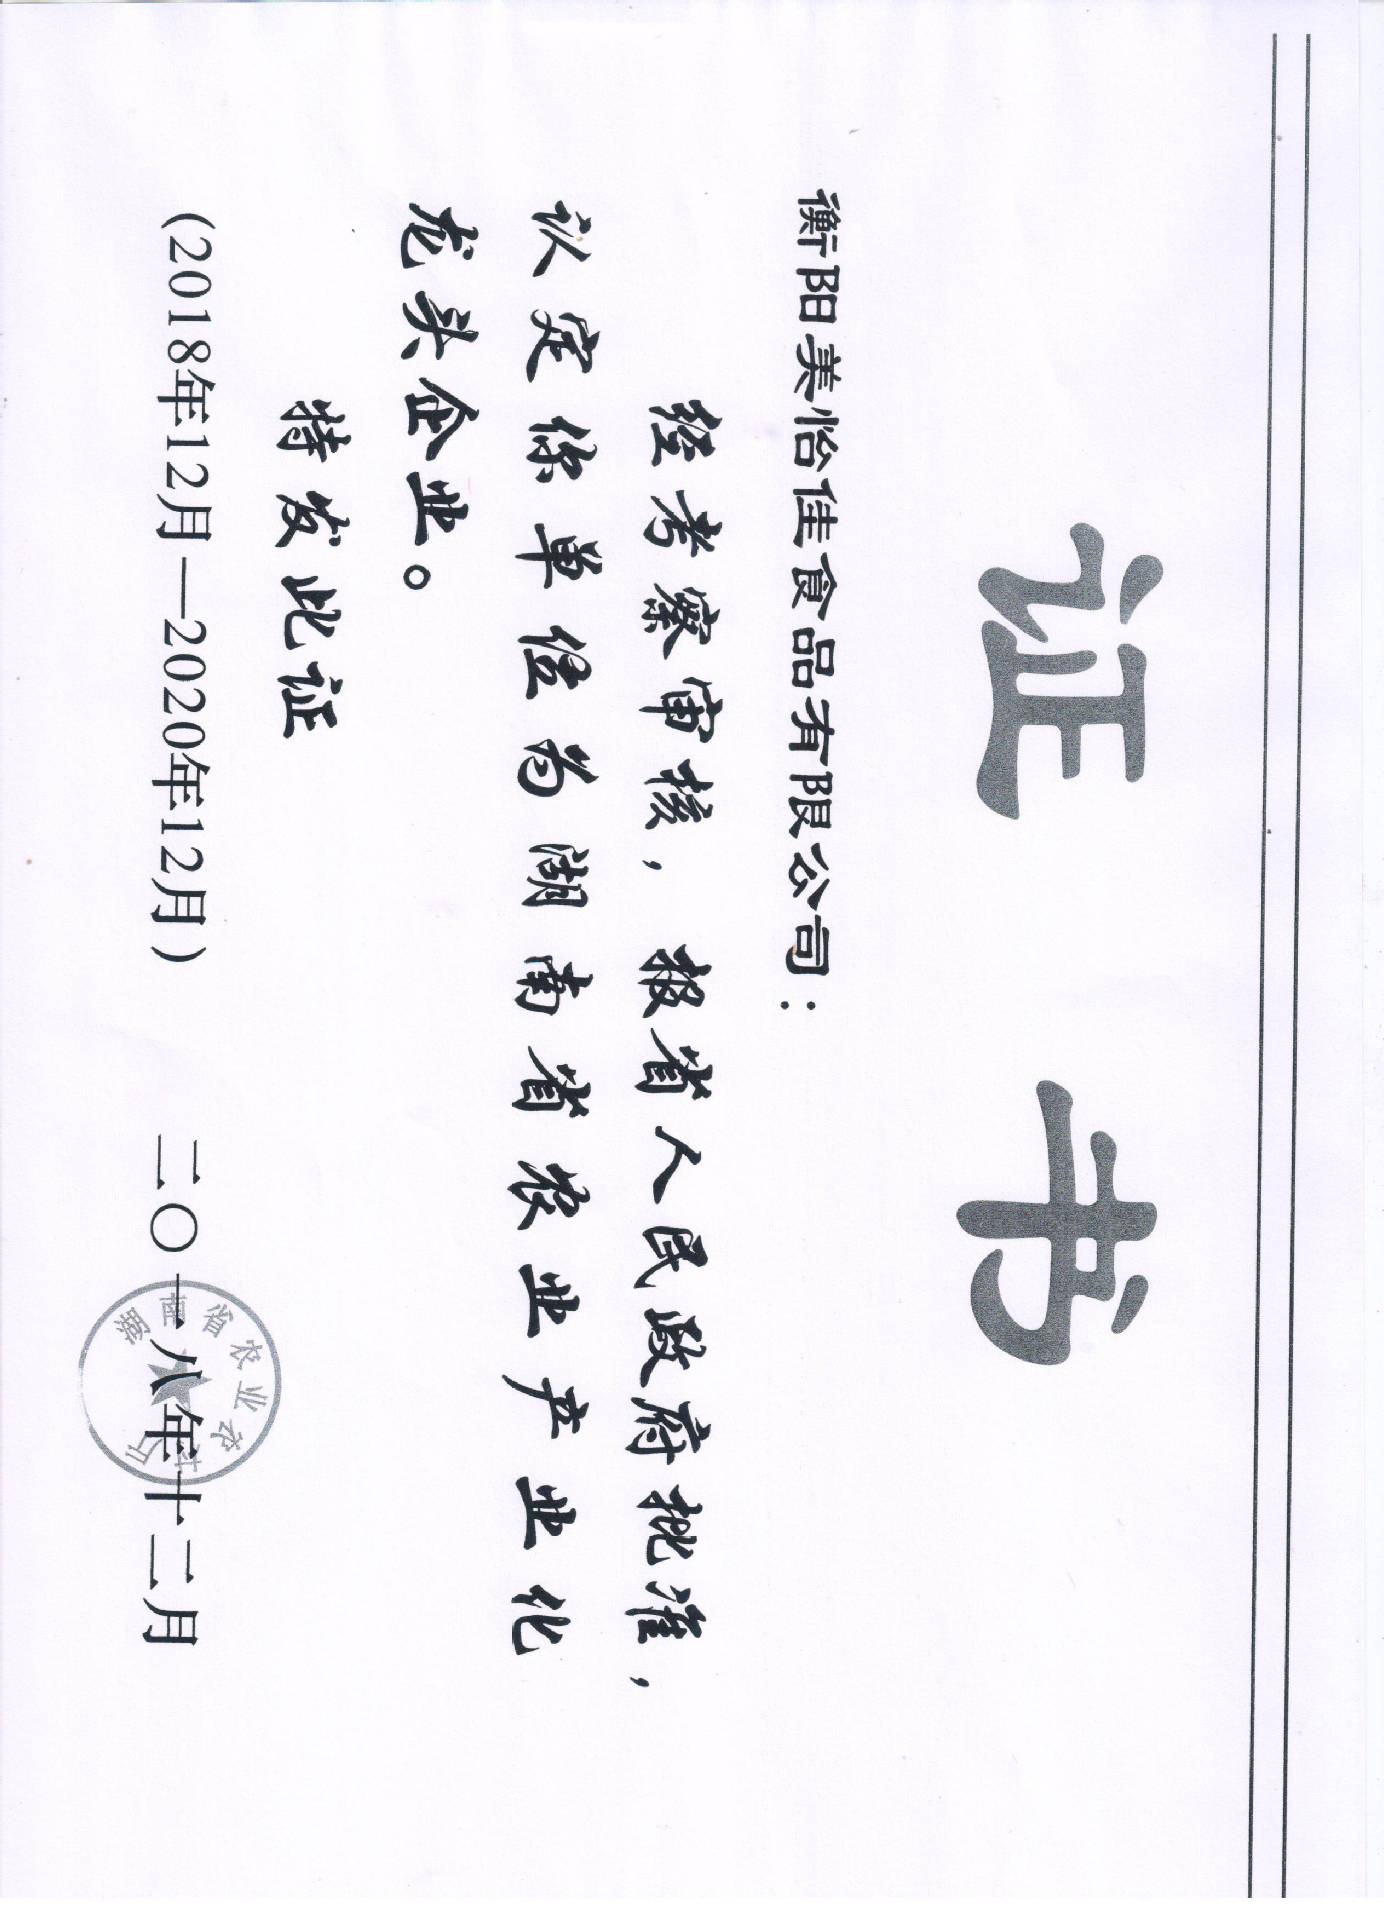 证 书
衡阳美怡佳食品有限公司：
经考察审核，报省人民政府批准，
认定你单位为湖南省农业产业化
龙头企业。
特发此证
（2018年12月—2020年12月）
二〇一八年十二月
湖南省农业农村